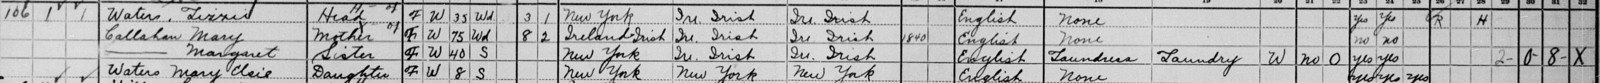 106 1 1 Waters, Lizzie Head F W 35 Wd 3 1 New York Ire. Irish Ire. Irish English None Yes Yes R H
Callahan Mary Mother F W 75 Wd 8 2 Ireland Irish Ire. Irish Ire. Irish 1840 English None no no
—— Margaret Sister F W 40 S New York Ire. Irish Ire. Irish English Laundress Laundry W no 0 yes yes 2-0-8-X
Waters Mary Elsie Daughter F W 8 S New York New York New York English None yes yes yes